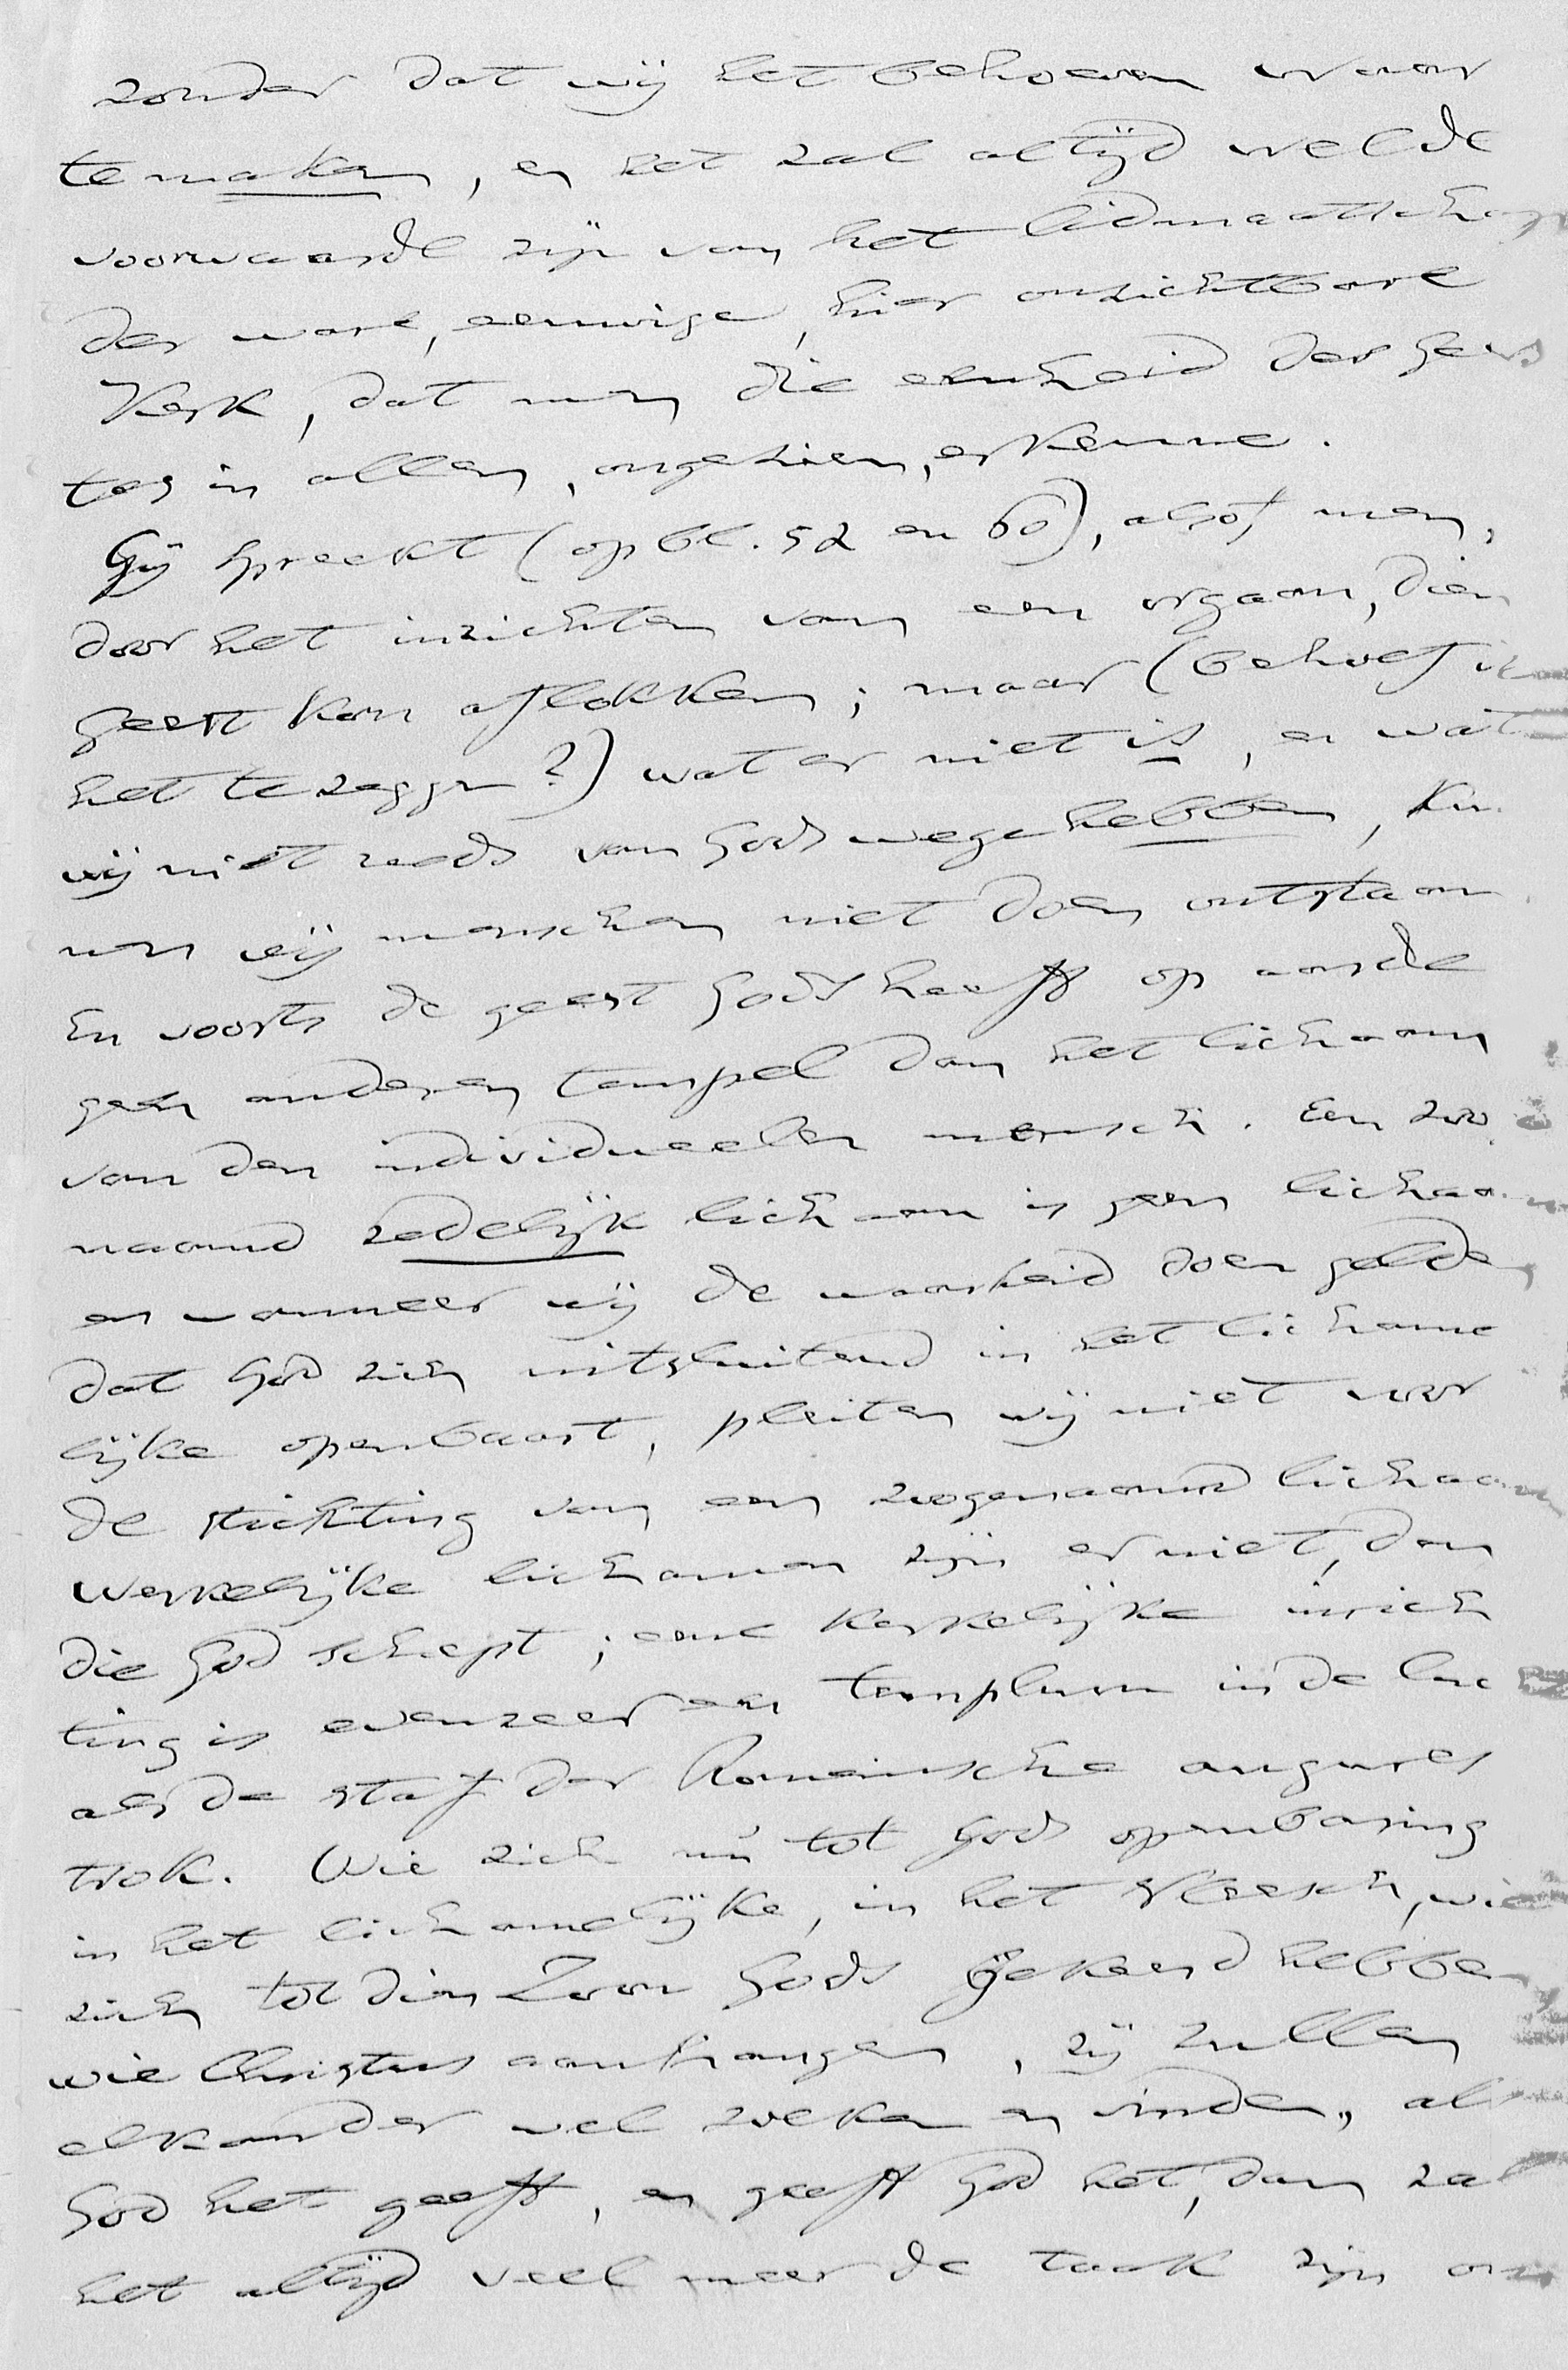 zonder dat wij het behoeven waar
te maken, en het zal altijd wel de
voorwaarde zijn van het lidmaatschap
der ware, eeuwige, hier onzichtbare
Kerk, dat men die eenheid des gees
tes in allen, ongezien, erkenne.
Gij spreekt (op bl. 52 en 60), alsof men,
door het inrichten van een orgaan, dien
geest kon aflokken; maar (behoef ik
het te zeggen?) wat er niet is, en wat
wij niet reeds van Gods wege hebben, kun
nen wij menschen niet doen ontstaan.
En voorts de geest Gods heeft op aarde
geen anderen tempel dan het lichaam
van den individueelen mensch. Een zoo
naamd zedelijk lichaam is geen lichaam
en wanneer wij de waarheid doen gelden
dat God zich uitsluitend in het lichame
lijke openbaart, pleiten wij niet voor
de stichting van een zogenaamd lichaam
werkelijke lichamen zijn er niet, dan
die God schept; eene kerkelijke inrich
ting is evenzeer een templum in de luc
als de staf der Romeinsche augures
trok. Wie zich nu tot Gods openbaring
in het lichamelijke, in het vleesch, wie
zich tot dien Zoon Gods gekeerd hebben
wie Christus aanhangen, zij zullen
elkander wel zoeken en vinden, als
God het geeft, en geeft God het, dan zal
het altijd veel meer de taak zijn om